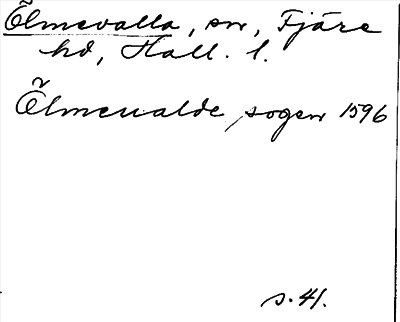 Ölmevalla, sn, Fjäre
hd, Hall. l.
Õlmeualde, sogen 1596
s. 41.